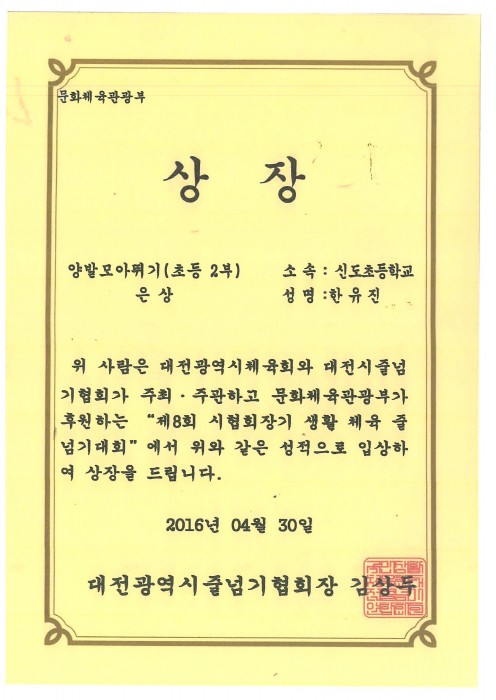 문화체육관광부
상 장
양발모아뛰기(초등 2부) 소 속 : 신도초등학교
은 상 성 명 : 한 유 진
위 사람은 대전광역시체육회와 대전시줄넘
기협회가 주최·주관하고 문화체육관광부가
후원하는 "제8회 시협회장기 생활 체육 줄
넘기대회" 에서 위와 같은 성적으로 입상하
여 상장을 드립니다.
2016년 04월 30일
대전광역시줄넘기협회장 김상두